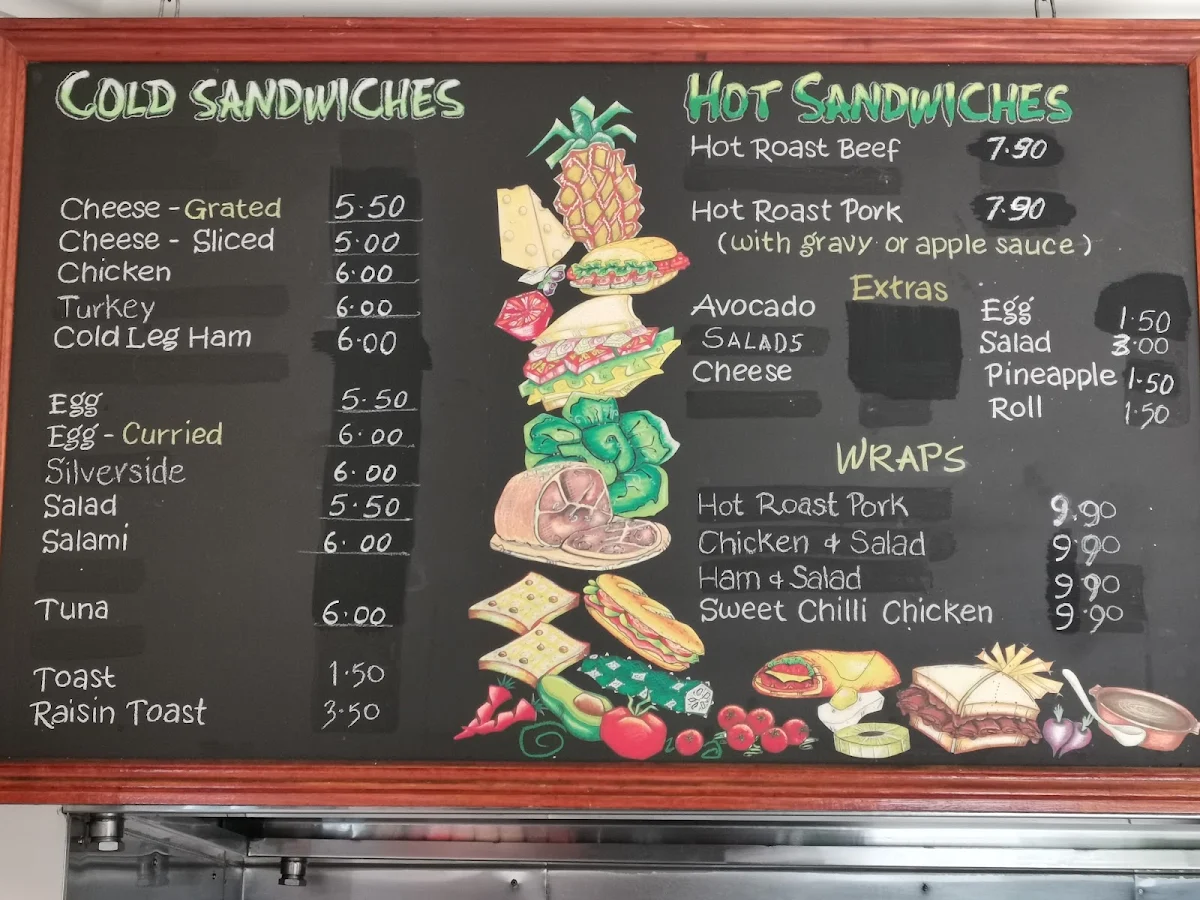 COLD SANDWICHES
Cheese - Grated 5.50
Cheese - Sliced 5.00
Chicken 6.00
Turkey 6.00
Cold Leg Ham 6.00
Egg 5.50
Egg - Curried 6.00
Silverside 6.00
Salad 5.50
Salami 6.00
Tuna 6.00
Toast 1.50
Raisin Toast 3.50
HOT SANDWICHES
Hot Roast Beef 7.90
Hot Roast Pork 7.90
(with gravy or apple sauce)
Extras
Avocado
SALADS
Cheese
Egg 1.50
Salad 3.00
Pineapple 1.50
Roll 1.50
WRAPS
Hot Roast Pork 9.90
Chicken & Salad 9.90
Ham & Salad 9.90
Sweet Chilli Chicken 9.90